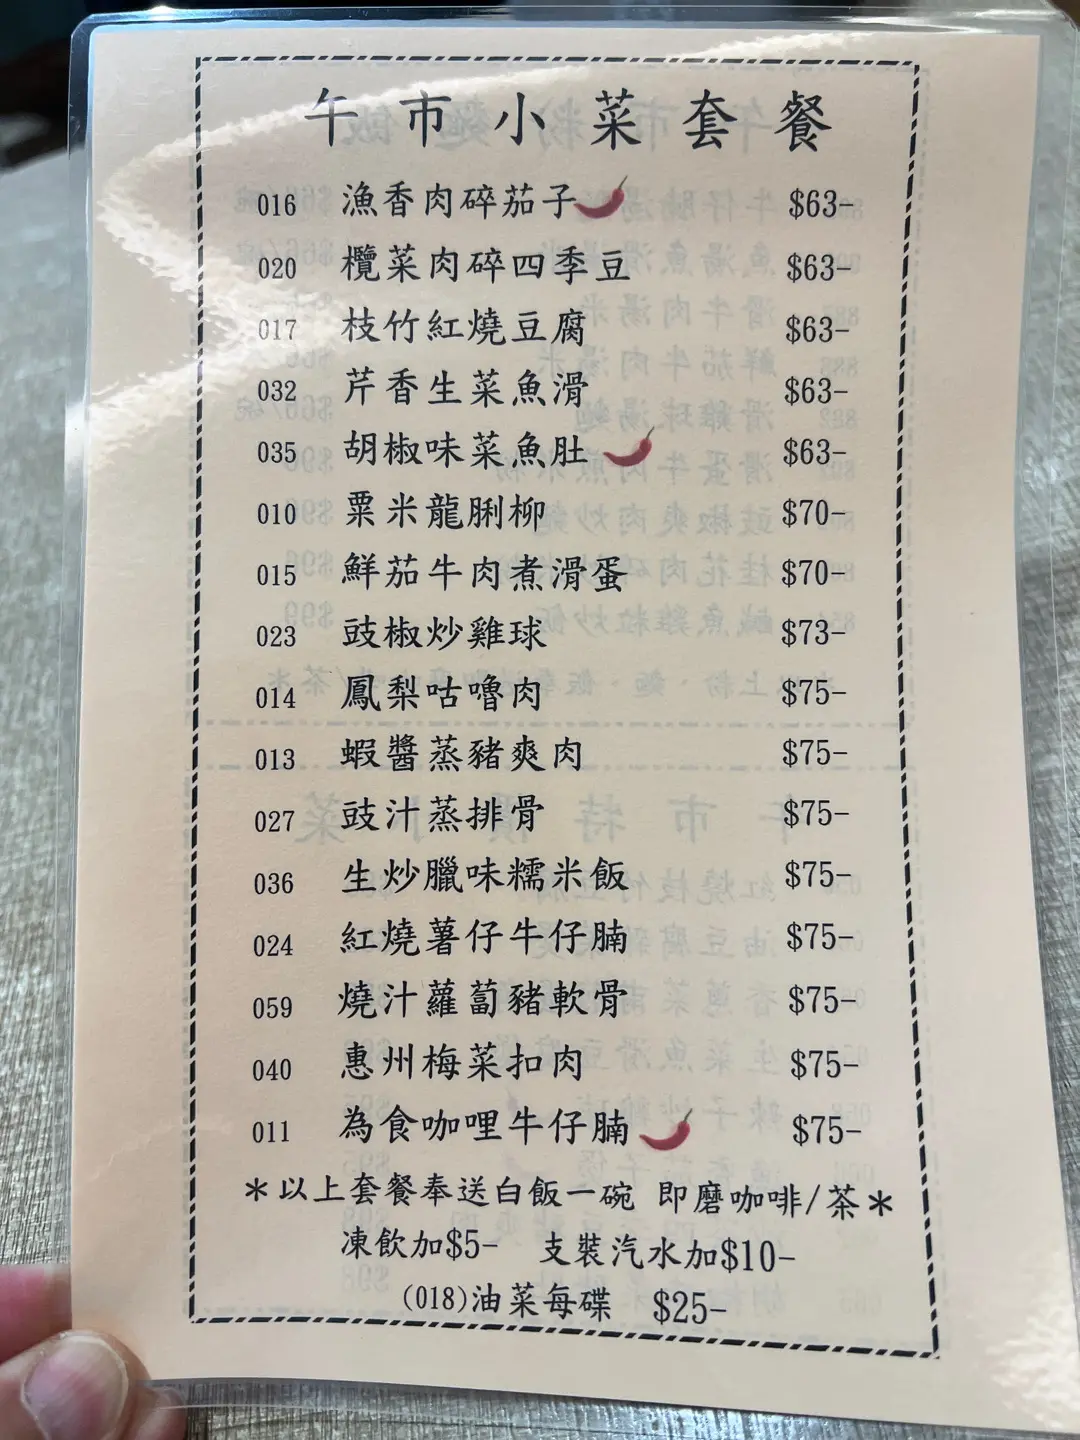 午市小菜套餐
016 漁香肉碎茄子 $63-
020 欖菜肉碎四季豆 $63-
017 枝竹紅燒豆腐 $63-
032 芹香生菜魚滑 $63-
035 胡椒味菜魚肚 $63-
010 粟米龍脷柳 $70-
015 鮮茄牛肉煮滑蛋 $70-
023 豉椒炒雞球 $73-
014 鳳梨咕嚕肉 $75-
013 蝦醬蒸豬爽肉 $75-
027 豉汁蒸排骨 $75-
036 生炒臘味糯米飯 $75-
024 紅燒薯仔牛仔腩 $75-
059 燒汁蘿蔔豬軟骨 $75-
040 惠州梅菜扣肉 $75-
011 為食咖哩牛仔腩 $75-
＊以上套餐奉送白飯一碗 即磨咖啡/茶＊
凍飲加$5- 支裝汽水加$10-
(018)油菜每碟 $25-